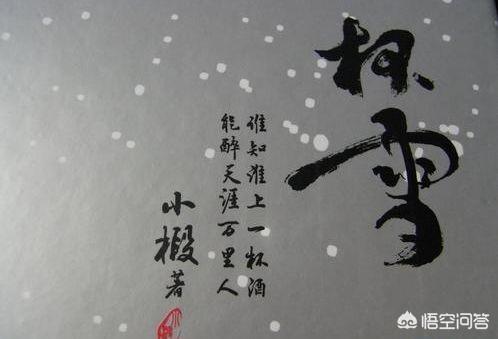 杯雪
谁知淮上一杯酒
能醉天涯万里人
小椴著
悟空问答